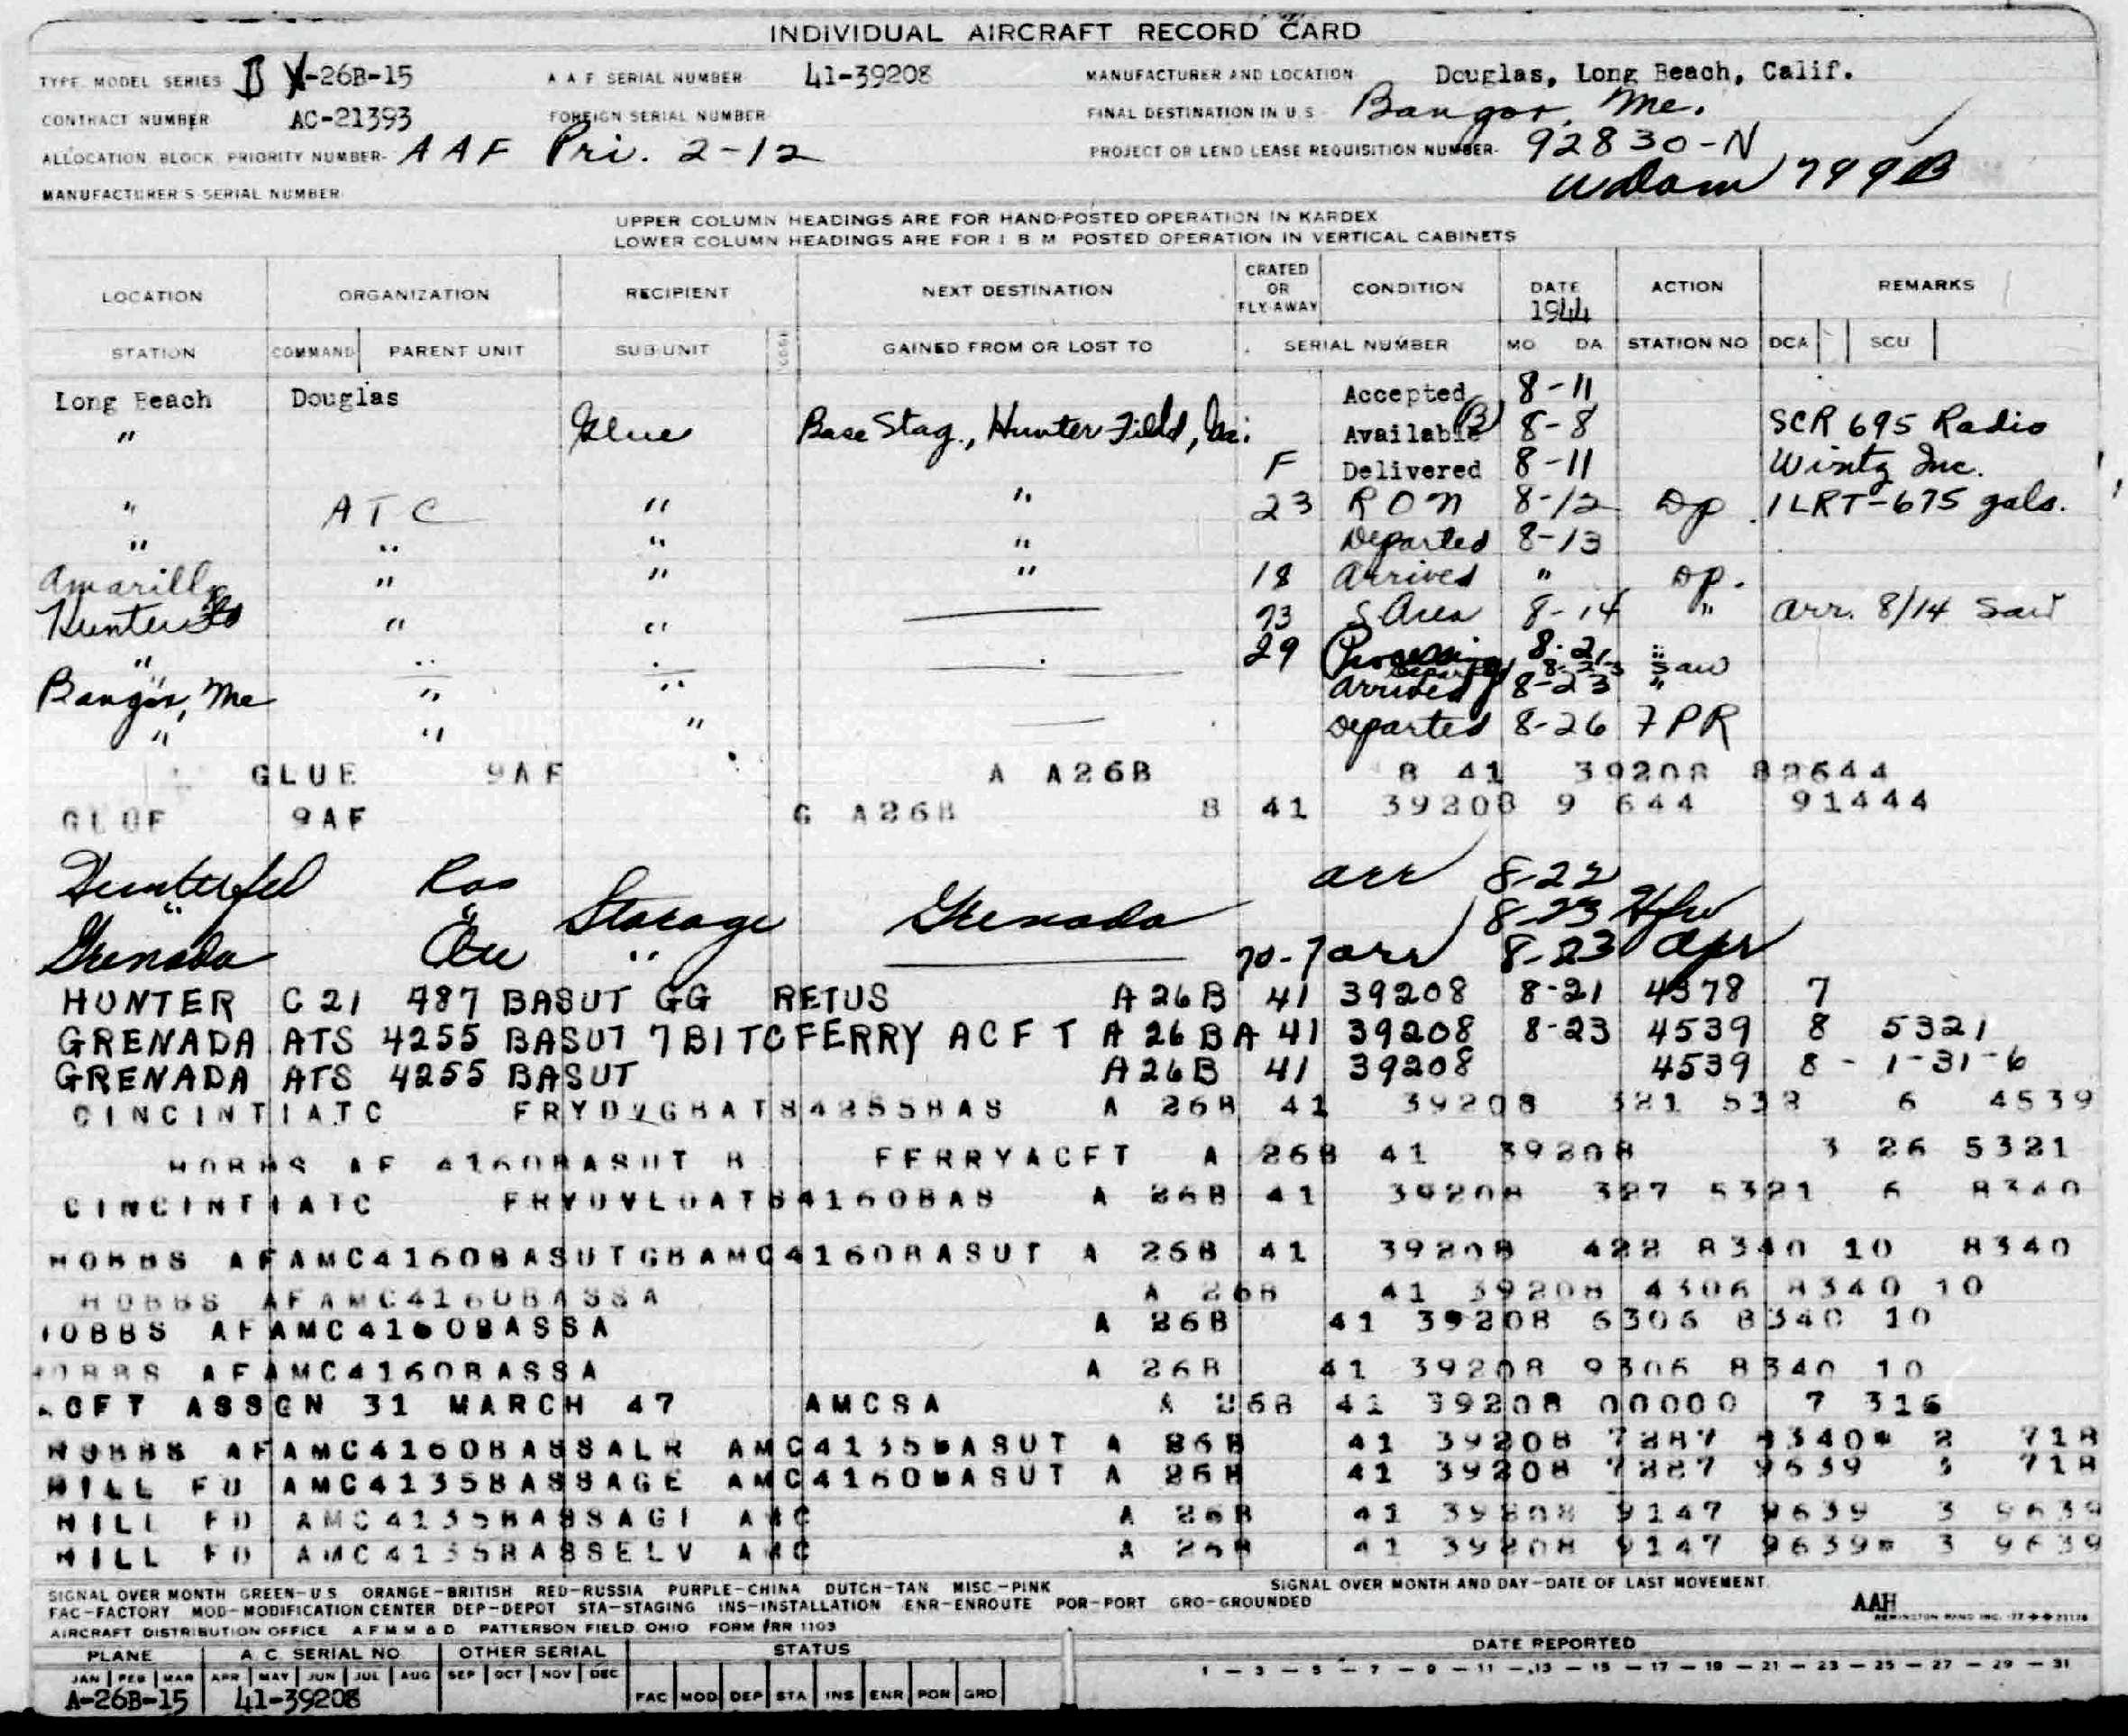 INDIVIDUAL AIRCRAFT RECORD CARD
TYPE, MODEL SERIES B -26B-15 A A F SERIAL NUMBER 41-39208 MANUFACTURER AND LOCATION Douglas, Long Beach, Calif.
CONTRACT NUMBER AC-21393 FOREIGN SERIAL NUMBER FINAL DESTINATION IN U S Bangor, Me.
ALLOCATION BLOCK, PRIORITY NUMBER- AAF Pri. 2-12 PROJECT OR LEND LEASE REQUISITION NUMBER- 92830-N
MANUFACTURER'S SERIAL NUMBER 799B
UPPER COLUMN HEADINGS ARE FOR HAND-POSTED OPERATION IN KARDEX
LOWER COLUMN HEADINGS ARE FOR I B M POSTED OPERATION IN VERTICAL CABINETS
LOCATION ORGANIZATION RECIPIENT NEXT DESTINATION CRATED OR FLY-AWAY CONDITION DATE 1944 ACTION REMARKS
STATION COMMAND PARENT UNIT SUB-UNIT GAINED FROM OR LOST TO SERIAL NUMBER MO DA STATION NO DCA SCU
Long Beach Douglas Accepted 8-11
" Glue Base Stag., Hunter Field, Ga. Available (B) 8-8 SCR 695 Radio
F Delivered 8-11 Wintz Inc.
" ATC " " 23 RON 8-12 Dp 1 LRT-675 gals.
" " " " Departed 8-13
Amarillo " " " 18 Arrived " Dp.
Hunter Fd " " 73 S Area 8-14 " arr. 8/14 Saw
" " " 29 Processing 8-21 "
Departed 8-23 Saw
Bangor, Me " " Arrived 8-23 "
" " " Departed 8-26 7PR
GLUE 9AF A A26B 8 41 39208 82644
GLUE 9AF G A26B 8 41 39208 9 644 91444
Hunterfd arr 8-22
" " Storage Grenada 8-23
Grenada " 70-7 arr 8-23
HUNTER C 21 487 BASUT GG RETUS A26B 41 39208 8-21 4378 7
GRENADA ATS 4255 BASUT 7BITCFERRY ACFT A 26 BA 41 39208 8-23 4539 8 5321
GRENADA ATS 4255 BASUT A26B 41 39208 4539 8 - 1-31-6
CINCINTIATC FRYDVGBATS4255BAS A 26B 41 39208 321 6 4539
HOBBS AF 4160BASUT B FERRYACFT A 26B 41 39208 3 26 5321
CINCINTIATC FRYDVLOATS4160BAS A 26B 41 39208 327 5321 6 8340
HOBBS AFAMC4160BASUTGBAMC4160BASUT A 26B 41 39208 422 8340 10 8340
HOBBS AFAMC4160BASSA A 26B 41 39208 4306 8340 10
HOBBS AFAMC4160BASSA A 26B 41 39208 6306 8340 10
HOBBS AFAMC4160BASSA A 26B 41 39208 9306 8340 10
ACFT ASSGN 31 MARCH 47 AMCSA A 26B 41 39208 00000 7 316
HOBBS AFAMC4160BASSALR AMC4135BASUT A 26B 41 39208 7287 8340* 2 718
HILL FD AMC4135BASSAGE AMC4160BASUT A 26B 41 39208 7287 9639 3 718
HILL FD AMC4135BASSAGI AMC A 26B 41 39208 9147 9639 3 9639
HILL FD AMC4135BASSELV AMC A 26B 41 39208 9147 9639* 3 9639
SIGNAL OVER MONTH GREEN-U.S ORANGE-BRITISH RED-RUSSIA PURPLE-CHINA DUTCH-TAN MISC-PINK SIGNAL OVER MONTH AND DAY-DATE OF LAST MOVEMENT.
FAC-FACTORY MOD-MODIFICATION CENTER DEP-DEPOT STA-STAGING INS-INSTALLATION ENR-ENROUTE POR-PORT GRO-GROUNDED AAH
AIRCRAFT DISTRIBUTION OFFICE A F M M & D PATTERSON FIELD, OHIO FORM #RR 1103
PLANE A. C. SERIAL NO. OTHER SERIAL STATUS DATE REPORTED
JAN FEB MAR APR MAY JUN JUL AUG SEP OCT NOV DEC 1 - 3 - 5 - 7 - 9 - 11 - 13 - 15 - 17 - 19 - 21 - 23 - 25 - 27 - 29 - 31
A-26B-15 41-39208 FAC MOD DEP STA INS ENR PON GRO